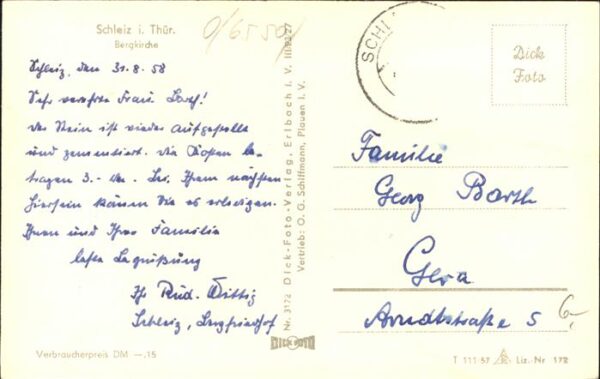 Schleiz i. Thür.
Bergkirche
0/6550/
Schleiz, den 31.8.58
Sehr verehrte Frau Barth!
Der Stein ist wieder aufgestellt
und zementiert. Die Kosten be-
tragen 3.- DM. Bei Ihrem nächsten
Hiersein können Sie es erledigen.
Ihnen und Ihrer Familie
beste Begrüßung
Ihr Rud. Wittig
Schleiz, Bergfriedhof
Verbraucherpreis DM —.15
Nr. 3172 Dick-Foto-Verlag, Erlbach i. V. III/
Vertrieb: O. G. Schiffmann, Plauen i. V.
DICK FOTO
SCHL
Dick
Foto
Familie
Georg Barth
Gera
Arndtstraße 5
6,-
T 111-57 Liz.-Nr 172